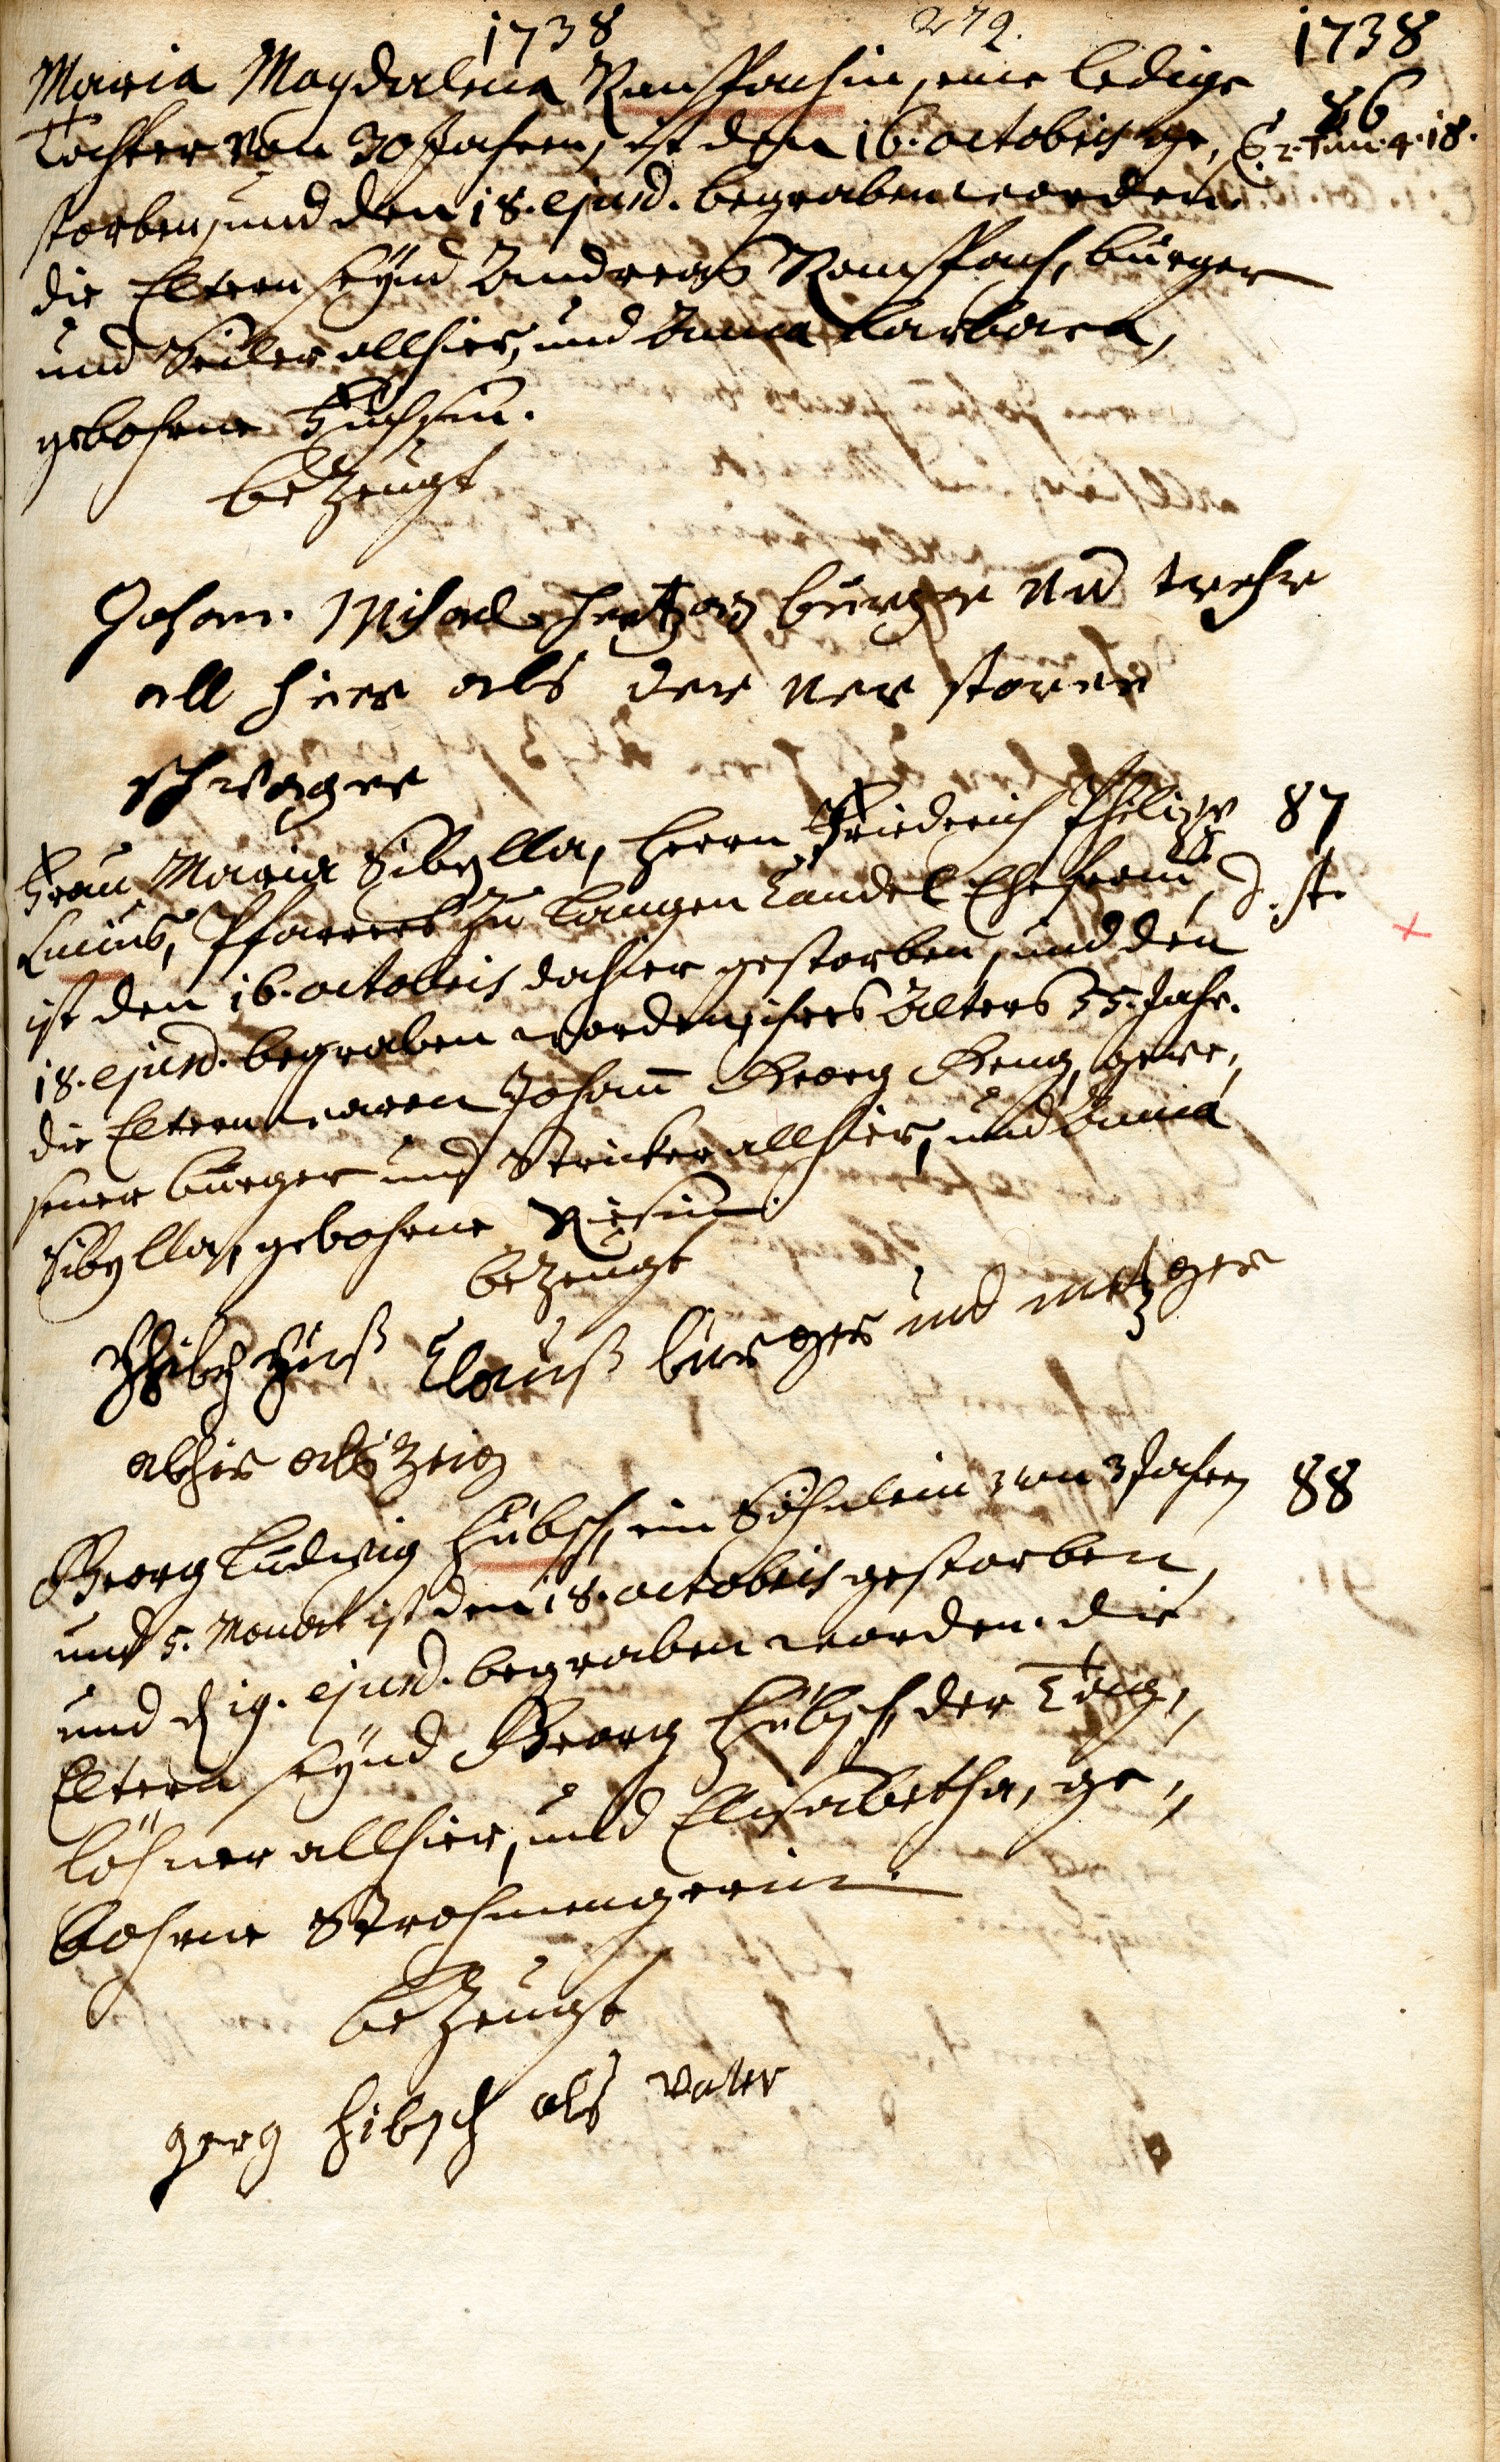 1738 279. 1738
Maria Magdalena Ramspachin, eine ledige
Tochter von 30 Jahren, ist den 16. octobris ge- 86
storben, und den 18. ejusd. begraben worden. E. 2. Tim. 4. 18.
die Eltern seynd Andreas Ramspach, burger
und Seiler allhier, und Anna Barbara,
gebohrne Fuchsin.
bezeugt
Johan. Michael hertzog burger und
all hier als der ver storbe
schwager
Frau Maria Sibylla, Herrn Friederich Philipp 87
Lucius, Pfarrers zu Langen Candel Ehefrau, J. st.
ist den 16. octobris dahier gestorben, und den
18. ejusd. begraben worden, ihres Alters 55. Jahr.
die Eltern waren Johann Georg Geng, gewe-
sener burger und Stricker allhier, und Anna
Sibylla, gebohrne
bezeugt
Clauß burger und metzger
alhir als zeig
Georg Ludwig Hübsch, ein Söhnlein von 3 Jahren 88
und 5. Monat ist den 18. octobris gestorben,
und d 19. ejusd. begraben worden. die
Eltern seynd Georg Hübsch, der Tag-
löhner allhier, und Elisabetha, ge-
bohrne Strohmengerin.
bezeugt
gerg hibsch als vatter